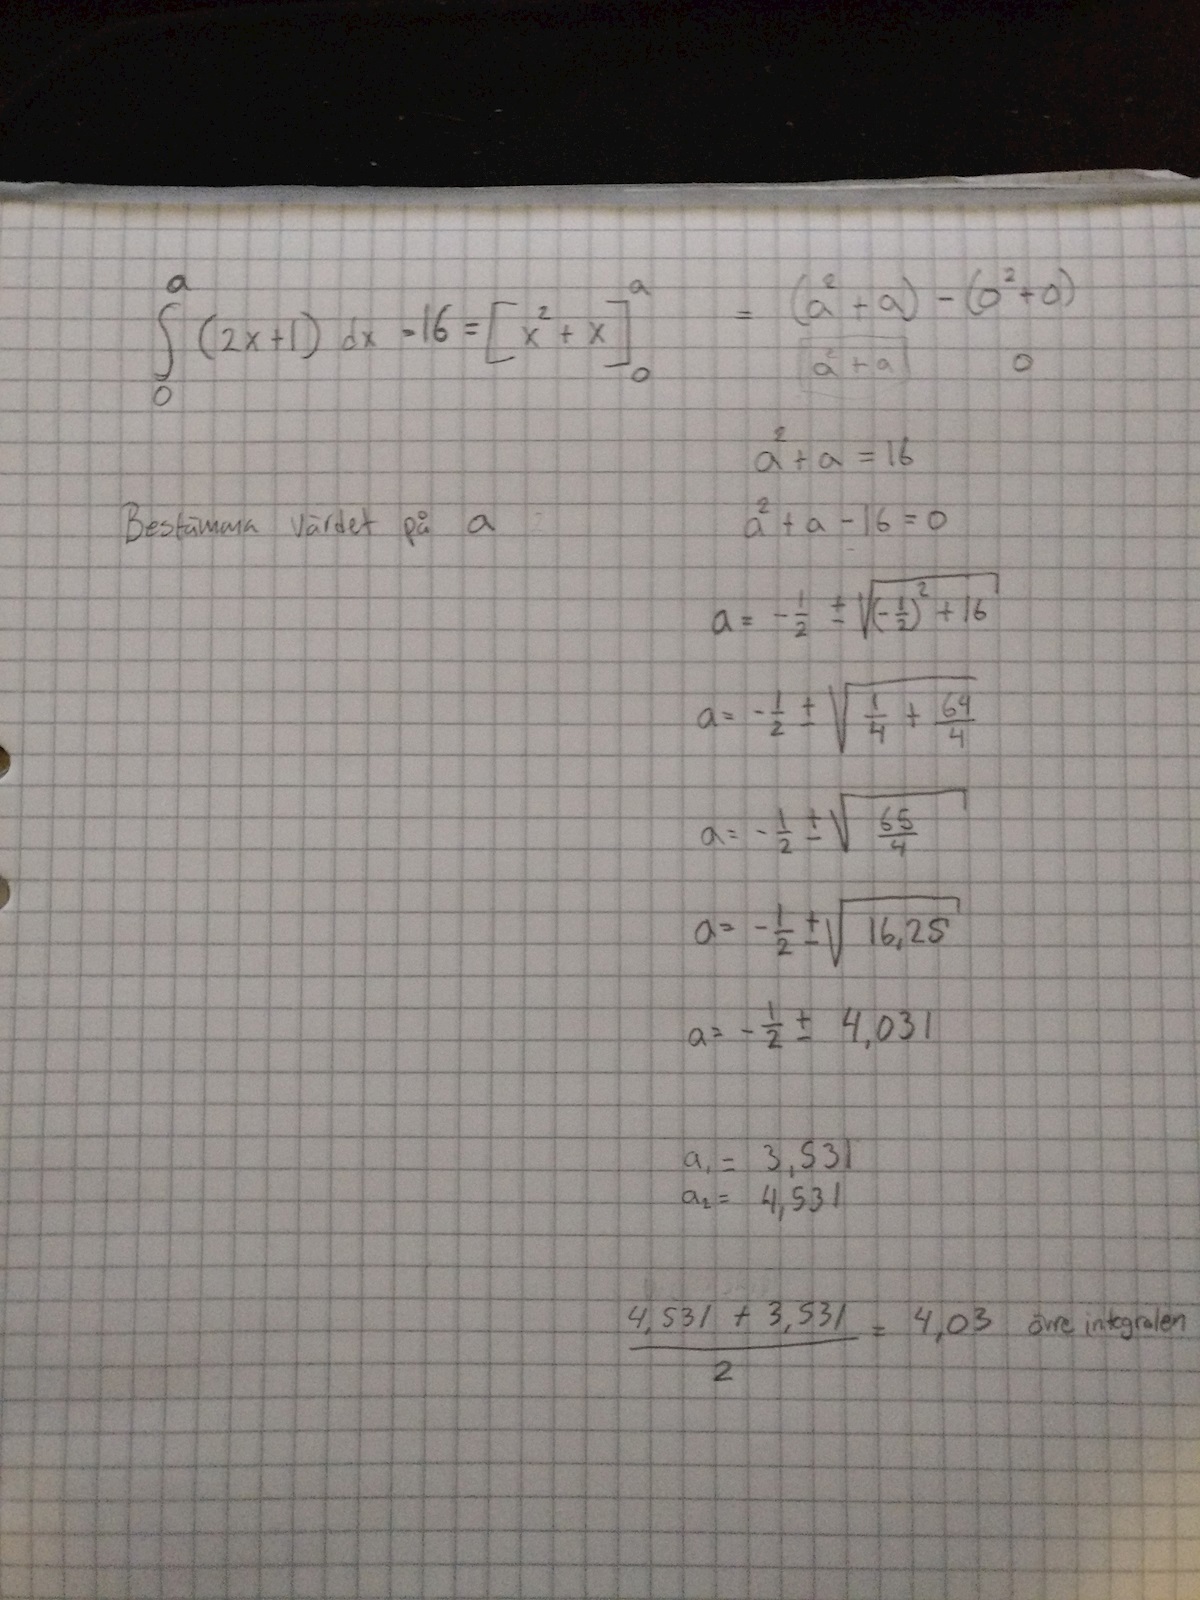 ∫₀ᵃ (2x+1) dx = 16 = [x² + x]₀ᵃ = (a² + a) - (0² + 0)
a² + a 0
a² + a = 16
Bestämma värdet på a a² + a - 16 = 0
a = -1/2 ± √((-1/2)² + 16)
a = -1/2 ± √(1/4 + 64/4)
a = -1/2 ± √(65/4)
a = -1/2 ± √(16,25)
a = -1/2 ± 4,031
a₁ = 3,531
a₂ = 4,531
(4,531 + 3,531)/2 = 4,03 övre integralen